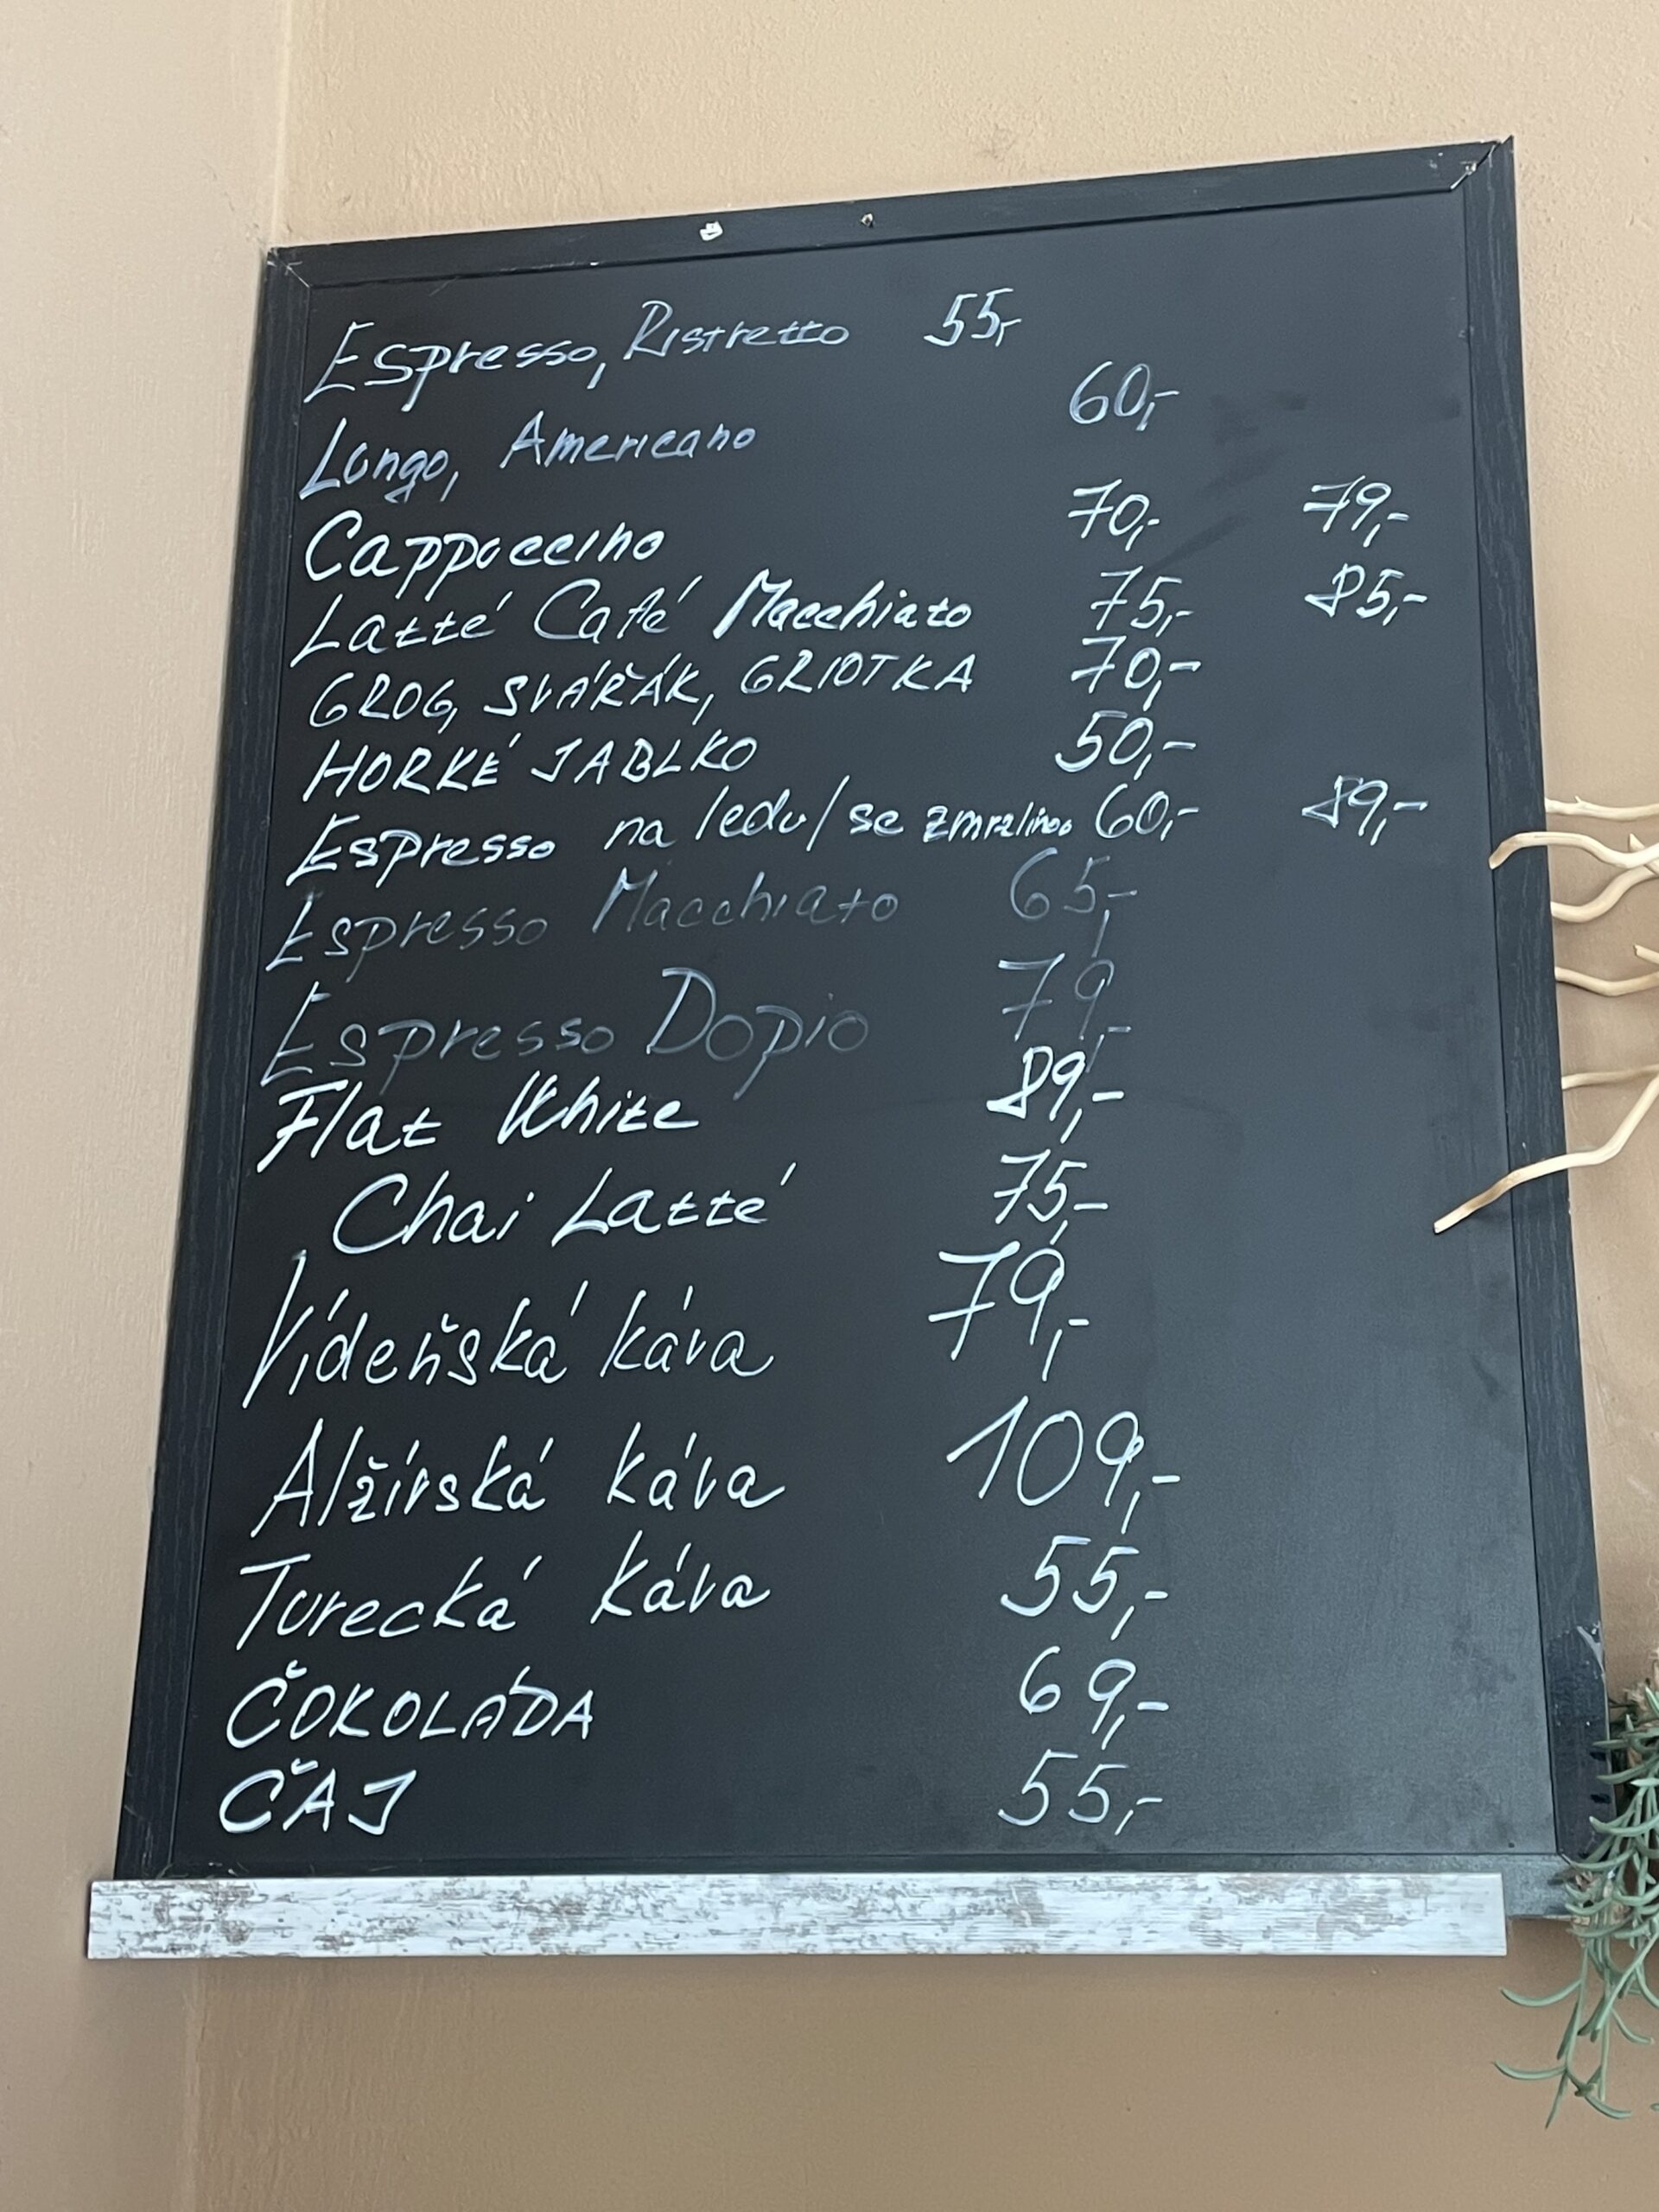 Espresso, Ristretto 55,-
Lungo, Americano 60,-
Cappuccino 70,- 79,-
Latté Café Macchiato 75,- 85,-
GROG, SVÁŘÁK, GRIOTKA 70,-
HORKÉ JABLKO 50,-
Espresso na ledu/se zmrzlinou 60,- 89,-
Espresso Macchiato 65,-
Espresso Dopio 79,-
Flat White 89,-
Chai Latté 75,-
Vídeňská káva 79,-
Alžírská káva 109,-
Turecká káva 55,-
ČOKOLÁDA 69,-
ČAJ 55,-